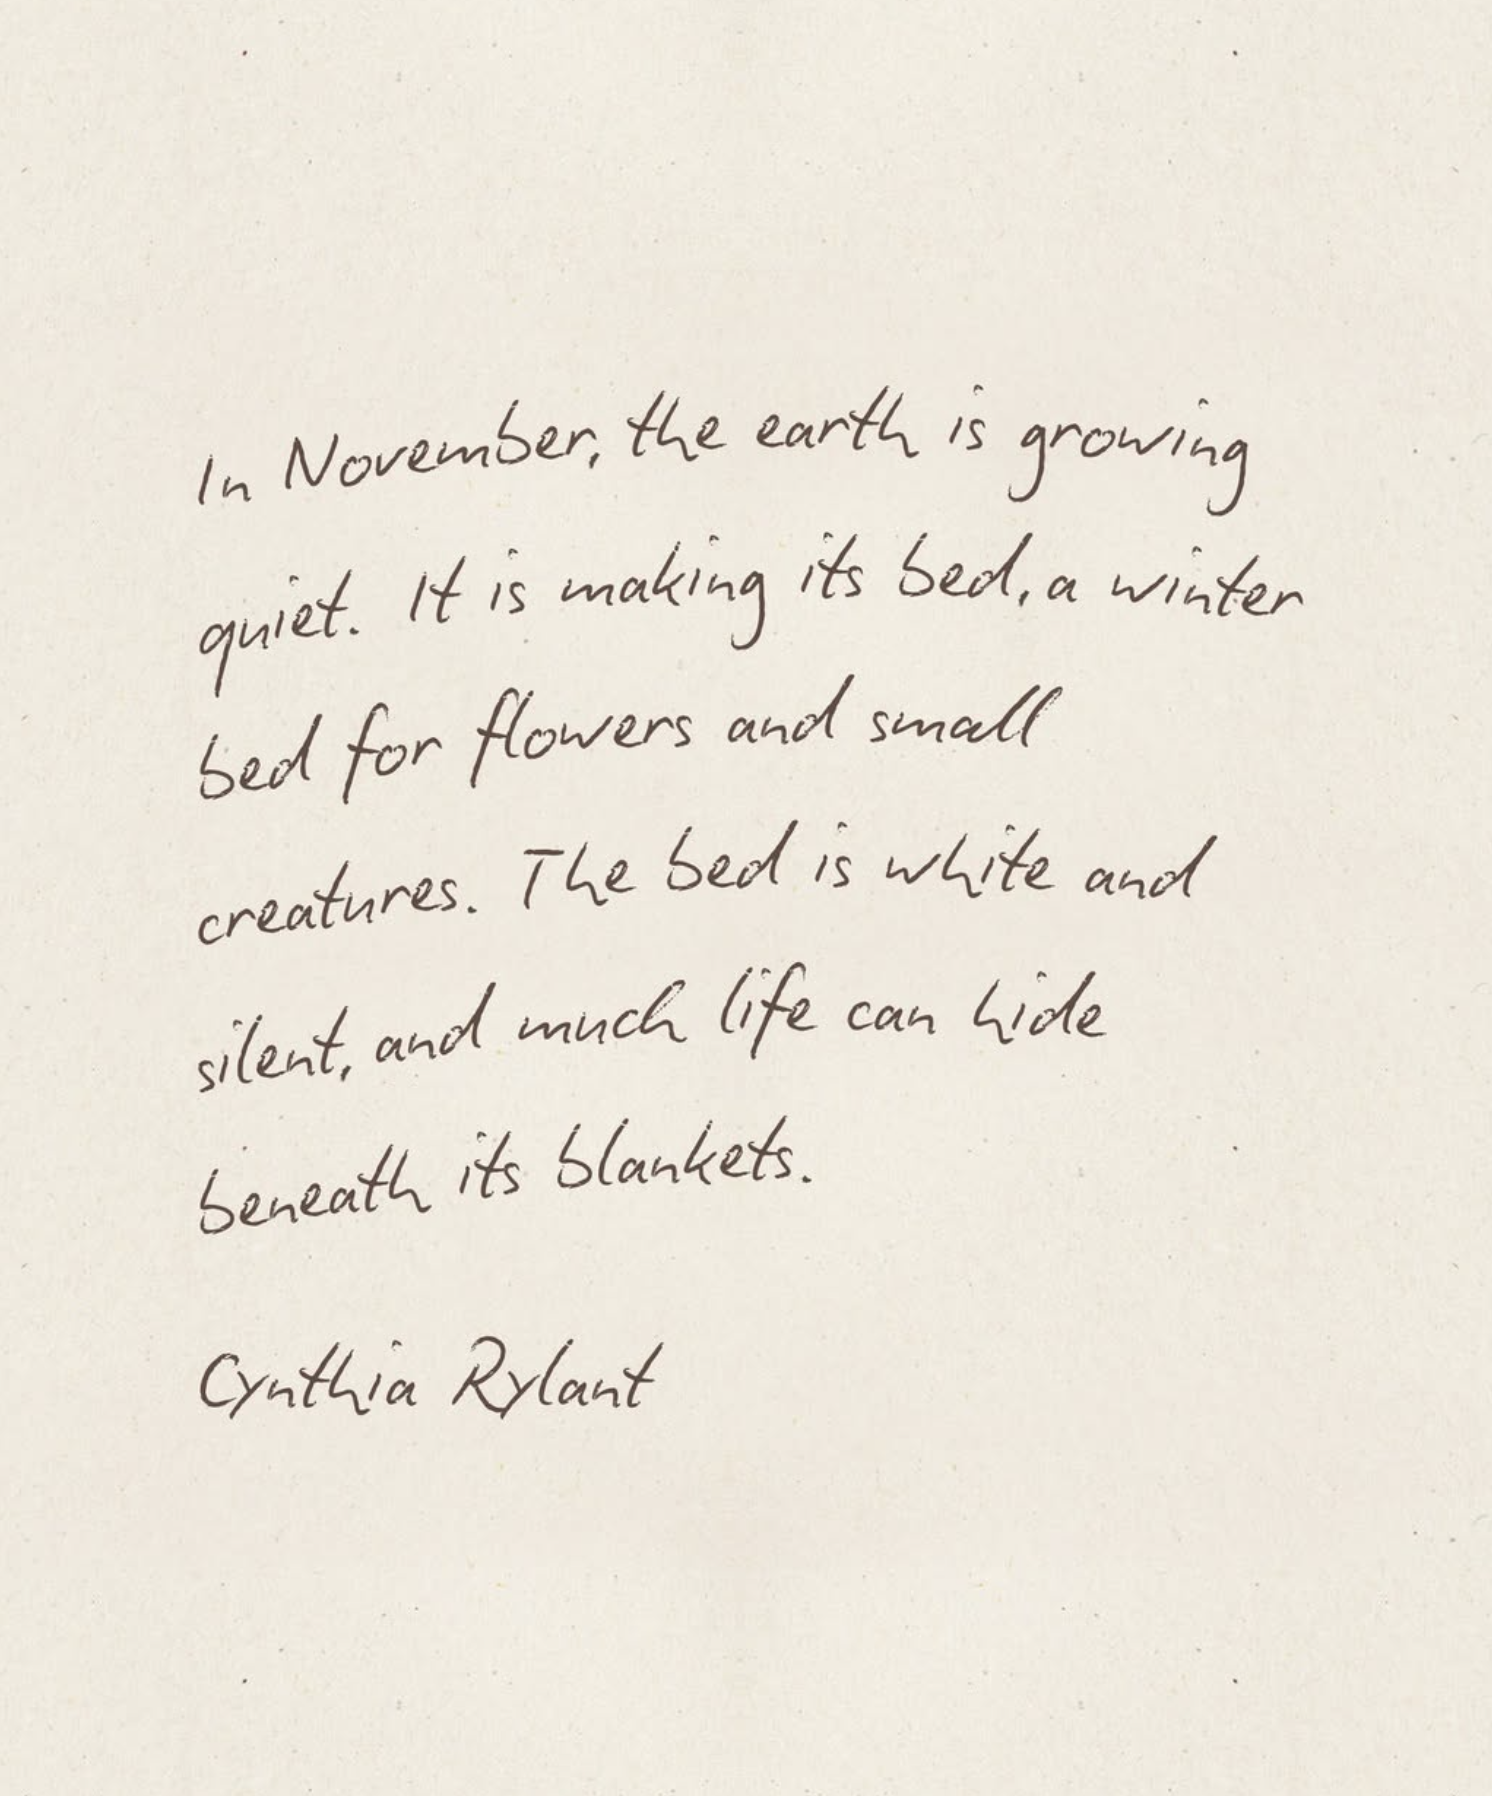 In November, the earth is growing
quiet. It is making its bed, a winter
bed for flowers and small
creatures. The bed is white and
silent, and much life can hide
beneath its blankets.
Cynthia Rylant